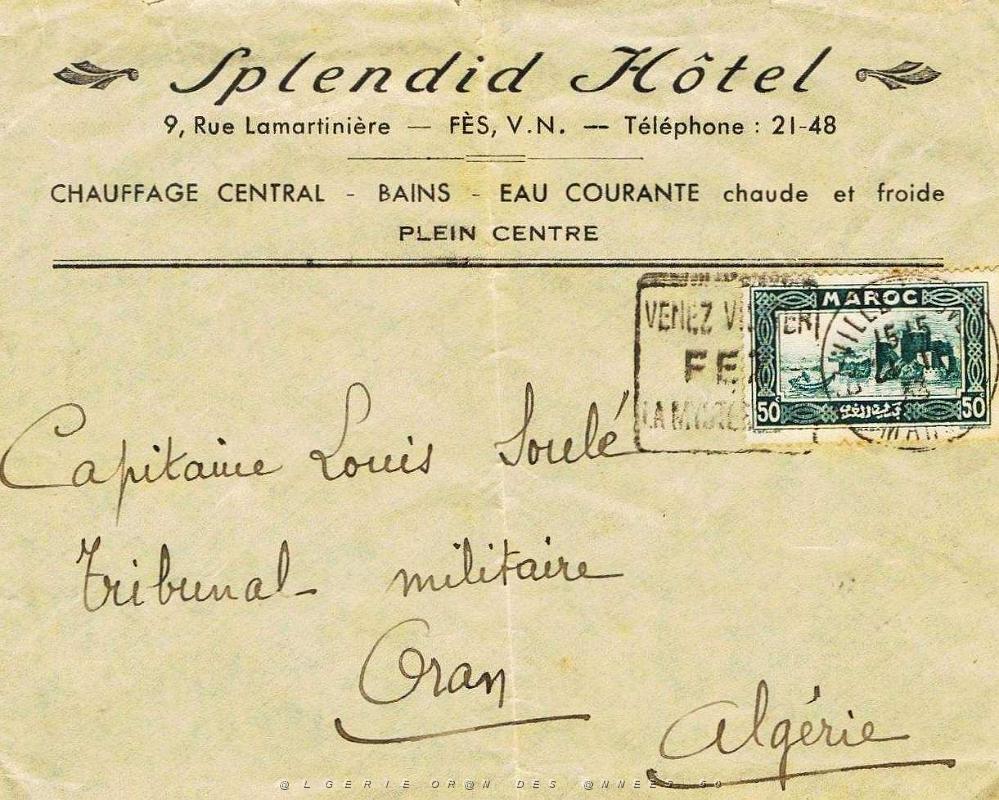 Splendid Hôtel
9, Rue Lamartinière — FÈS, V.N. — Téléphone : 21-48
CHAUFFAGE CENTRAL - BAINS - EAU COURANTE chaude et froide
PLEIN CENTRE
VENEZ
FEZ
LA
MAROC
15 15
50 50
Capitaine Louis Soulé
Tribunal militaire
Oran
Algérie
@LGERIE OR@N DES @NNEES 50